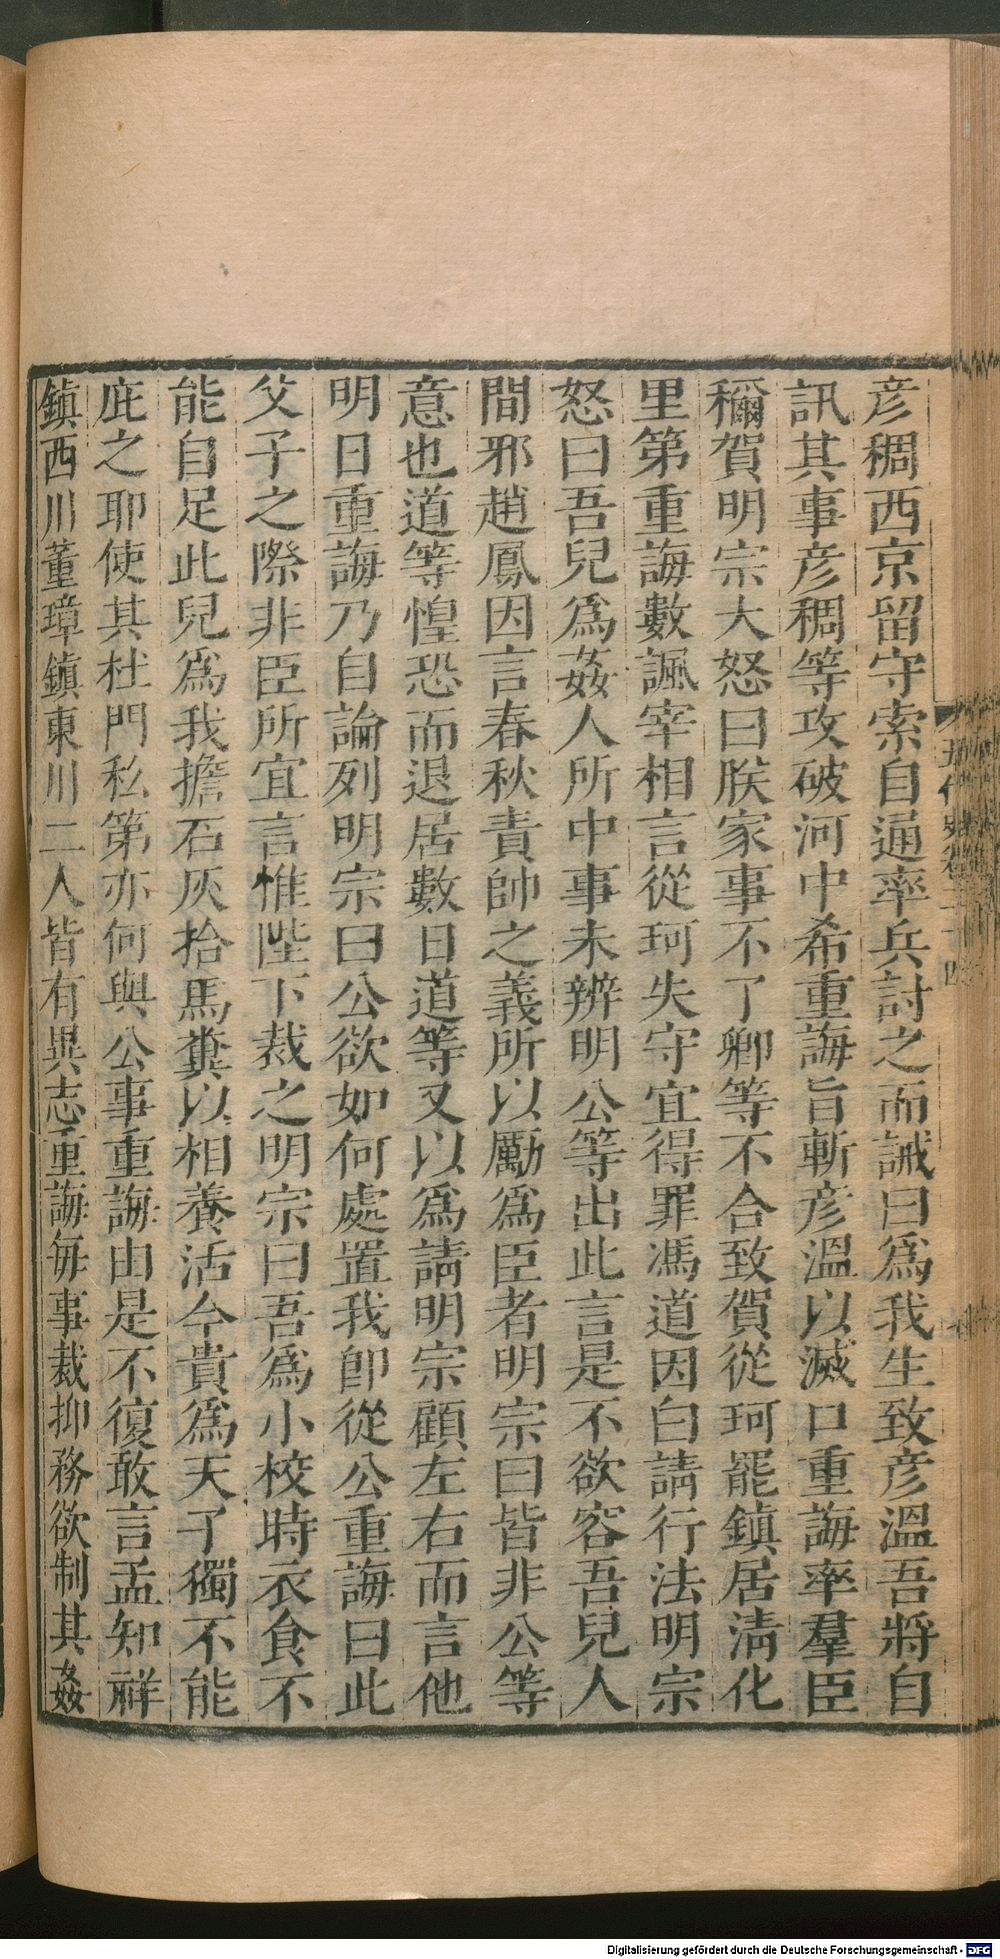 彦稠西京留守索自通率兵討之而誡曰爲我生致彦溫吾將自
訊其事彦稠等攻破河中希重誨旨斬彦溫以滅口重誨率羣臣
稱賀明宗大怒曰朕家事不了卿等不合致賀從珂罷鎮居淸化
里第重誨數諷宰相言從珂失守宜得罪馮道因白請行法明宗
怒曰吾兒爲姦人所中事未辨明公等出此言是不欲容吾兒人
間邪趙鳳因言春秋責帥之義所以勵爲臣者明宗曰皆非公等
意也道等惶恐而退居數日道等又以爲請明宗顧左右而言他
明日重誨乃自論列明宗曰公欲如何處置我卽從公重誨曰此
父子之際非臣所宜言惟陛下裁之明宗曰吾爲小校時衣食不
能自足此兒爲我擔石灰拾馬糞以相養活今貴爲天子獨不能
庇之耶使其杜門私第亦何與公事重誨由是不復敢言孟知祥
鎮西川董璋鎮東川二人皆有異志重誨每事裁抑務欲制其姦
五代史卷二十四
Digitalisierung gefördert durch die Deutsche Forschungsgemeinschaft - DFG